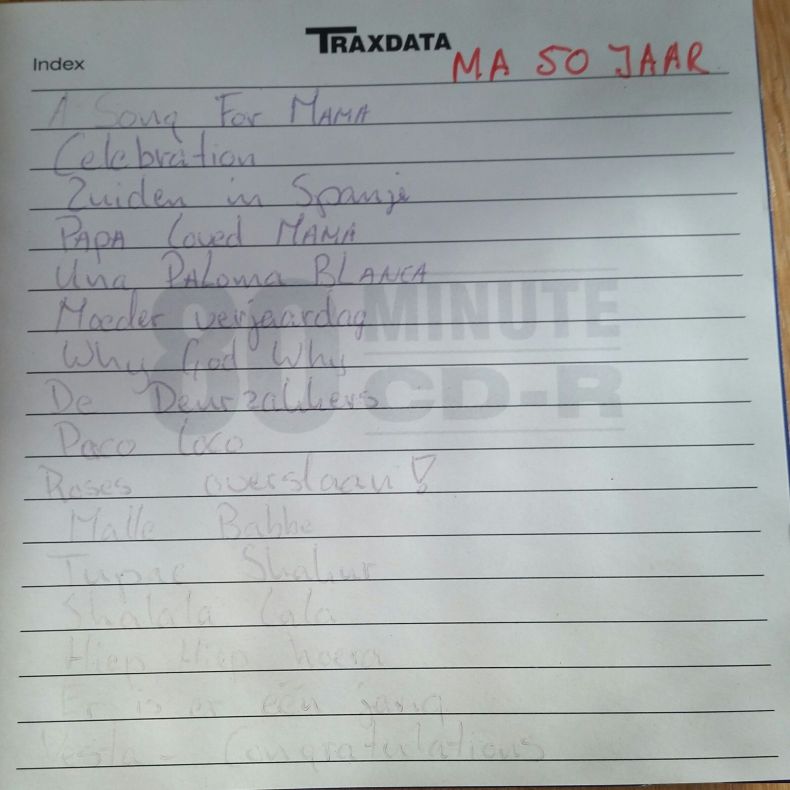 TRAXDATA
Index
MA 50 JAAR
A Song For MAMA
Celebration
Zuiden in Spanje
PAPA loved MAMA
Una PALOMA BLANCA
Moeder verjaardag
Why God Why
De Deurzakkers
Paco loco
Roses overslaan!
Malle Babbe
Tupac Shakur
Shalala lala
Hiep Hiep hoera
Er is er één jarig
Vesta - Congratulations
80 MINUTE
CD-R